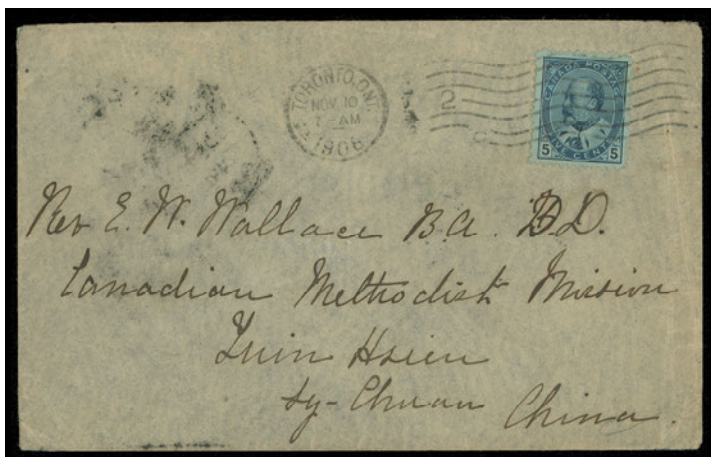 TORONTO, ONT.
NOV 10
7-AM
1906
2
CANADA POSTAGE
5 FIVE CENTS 5
Rev E. W. Wallace B.A. B.D.
Canadian Methodist Mission
Yuin Hsien
Sy-Chuan China.